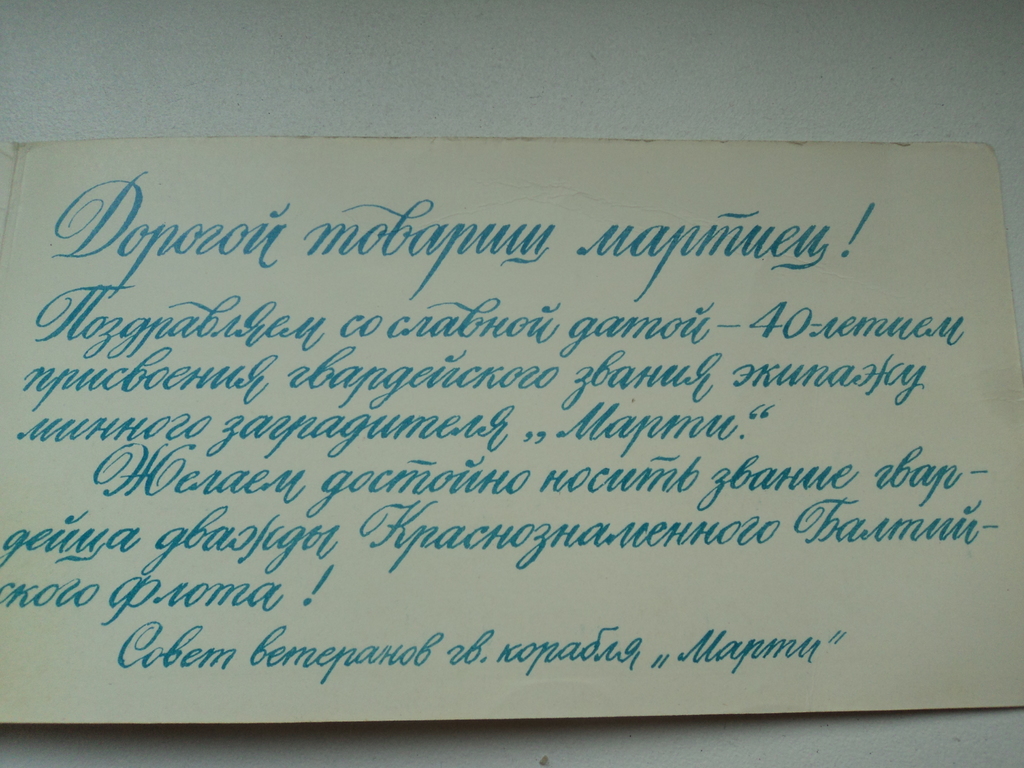 Дорогой товарищ мартиец!
Поздравляем со славной датой – 40-летием
присвоения гвардейского звания экипажу
минного заградителя „Марти.“
Желаем достойно носить звание гвар-
дейца дважды Краснознаменного Балтий-
ского флота!
Совет ветеранов гв. корабля „Марти“